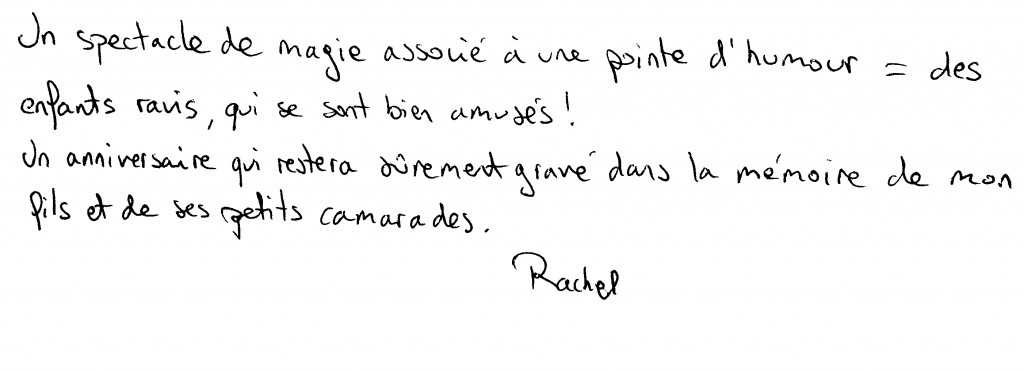 Un spectacle de magie associé à une pointe d'humour = des
enfants ravis, qui se sont bien amusés !
Un anniversaire qui restera sûrement gravé dans la mémoire de mon
fils et de ses petits camarades.
Rachel